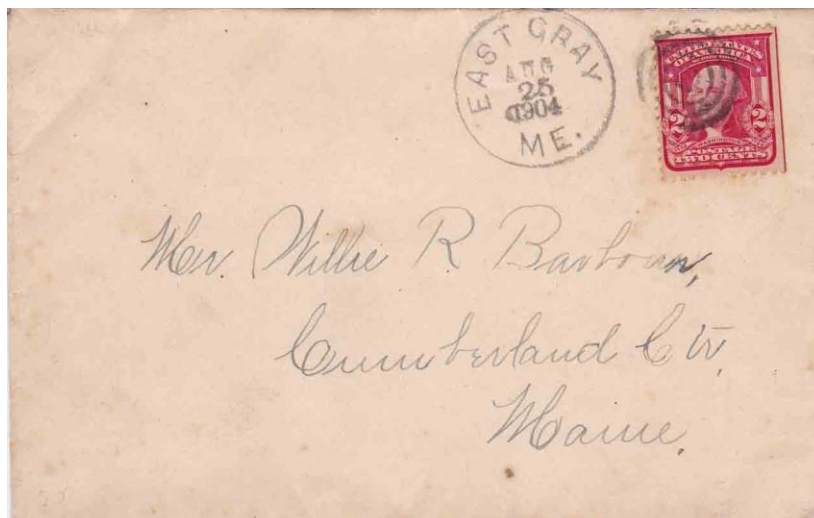 EAST GRAY
AUG
25
1904
ME.
UNITED STATES
OF AMERICA
2 2
POSTAGE
TWO CENTS
Mr. Willie R Barbour,
Cumberland Ctr,
Maine.